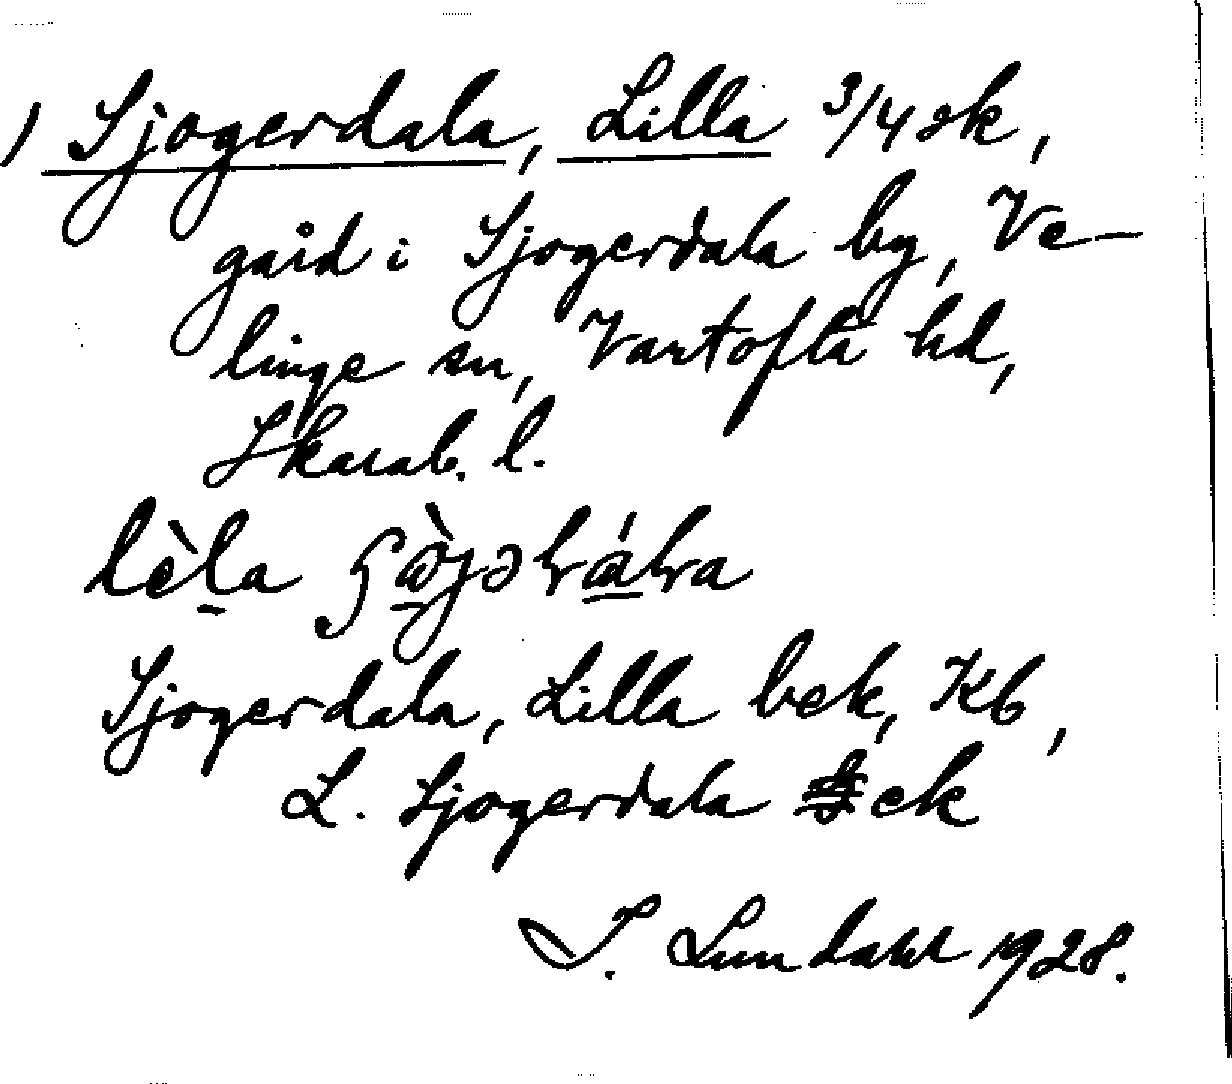 1) Sjogerdala, Lilla 3/4 sk,
gård i Sjogerdala by, Ve-
linge sn, Vartofta hd,
Skarab. l.
Sjogerdala, Lilla bek, Kb,
L. Sjogerdala ek
I. Lundahl 1928.